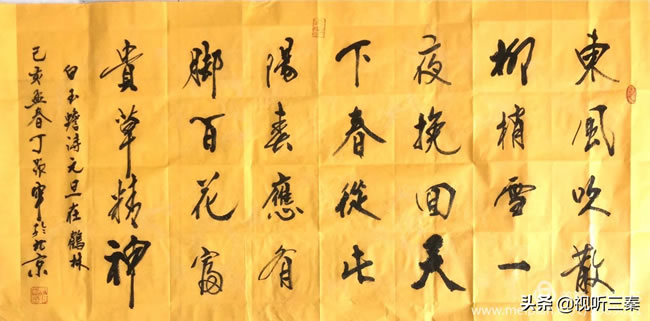 東風吹散
柳梢雪一
夜挽回天
下春從此
陽春應有
脚百花富
貴草精神
白玉蟾詩元旦在鶴林
己亥孟春丁 於北京
头条 @视听三秦